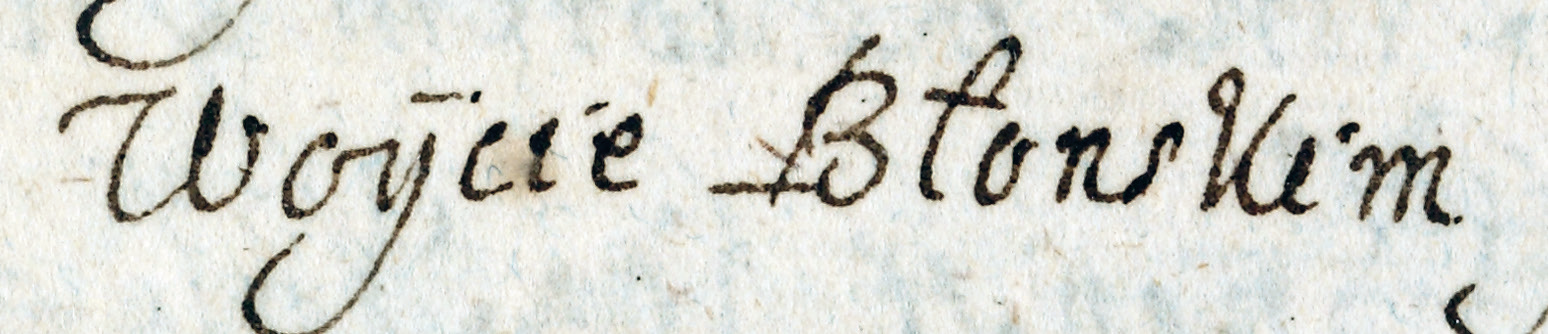 Woÿcie Błonskim